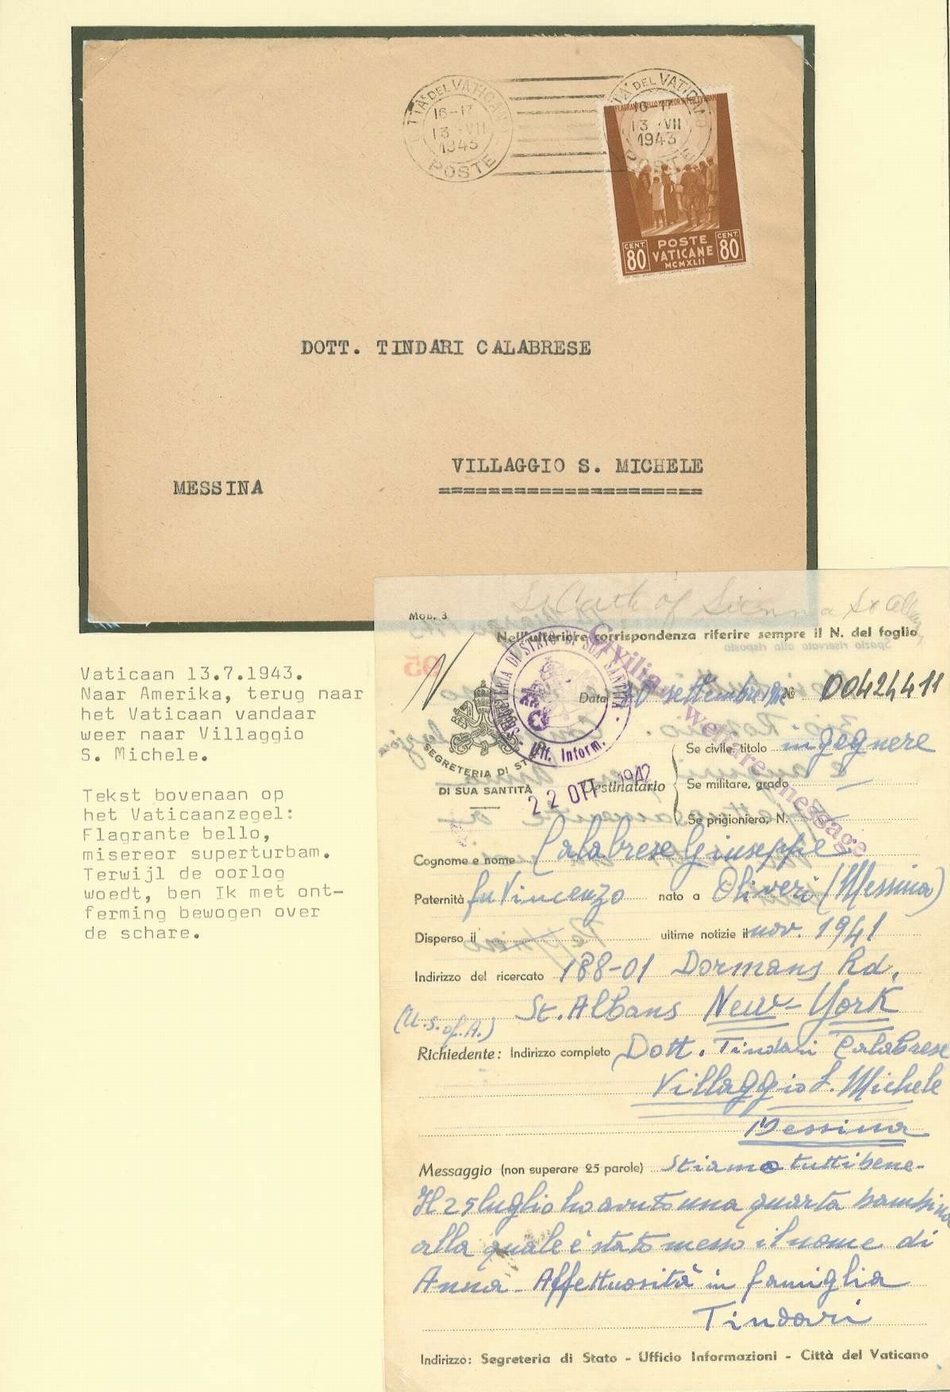 CITTÀ DEL VATICANO
16-17
13 VII
1943
POSTE
16-17
13 VII
1943
POSTE
CENT 80
POSTE
VATICANE
MCMXLII
CENT 80
DOTT. TINDARI CALABRESE
VILLAGGIO S. MICHELE
MESSINA
Vaticaan 13.7.1943.
Naar Amerika, terug naar
het Vaticaan vandaar
weer naar Villaggio
S. Michele.
Tekst bovenaan op
het Vaticaanzegel:
Flagrante bello,
misereor superturbam.
Terwijl de oorlog
woedt, ben Ik met ont-
ferming bewogen over
de schare.
Mod. 3
Nell'ulteriore corrispondenza riferire sempre il N. del foglio
Spazio riservato alla risposta
SEGRETERIA DI STATO DI SUA SANTITÀ
Uff. Inform.
Civilian welfare message
Data 20 settembre 1942 N. 00424411
SEGRETERIA DI STATO
DI SUA SANTITÀ
22 OTT 1942
Destinatario
Se civile, titolo ingegnere
Se militare, grado
Se prigioniero, N.
Cognome e nome Calabrese Giuseppe
Paternità fu Vincenzo nato a Oliveri (Messina)
Disperso il ultime notizie il nov. 1941
Indirizzo del ricercato 188-01 Dormans Rd.
St. Albans New-York
(U.S. of A.)
Richiedente: Indirizzo completo Dott. Tindari Calabrese
Villaggio S. Michele
Messina
Messaggio (non superare 25 parole) Stiamo tutti bene-
Il 25 luglio ho avuto una quarta bambina
alla quale è stato messo il nome di
Anna - Affettuosità in famiglia
Tindari
Indirizzo: Segreteria di Stato - Ufficio Informazioni - Città del Vaticano